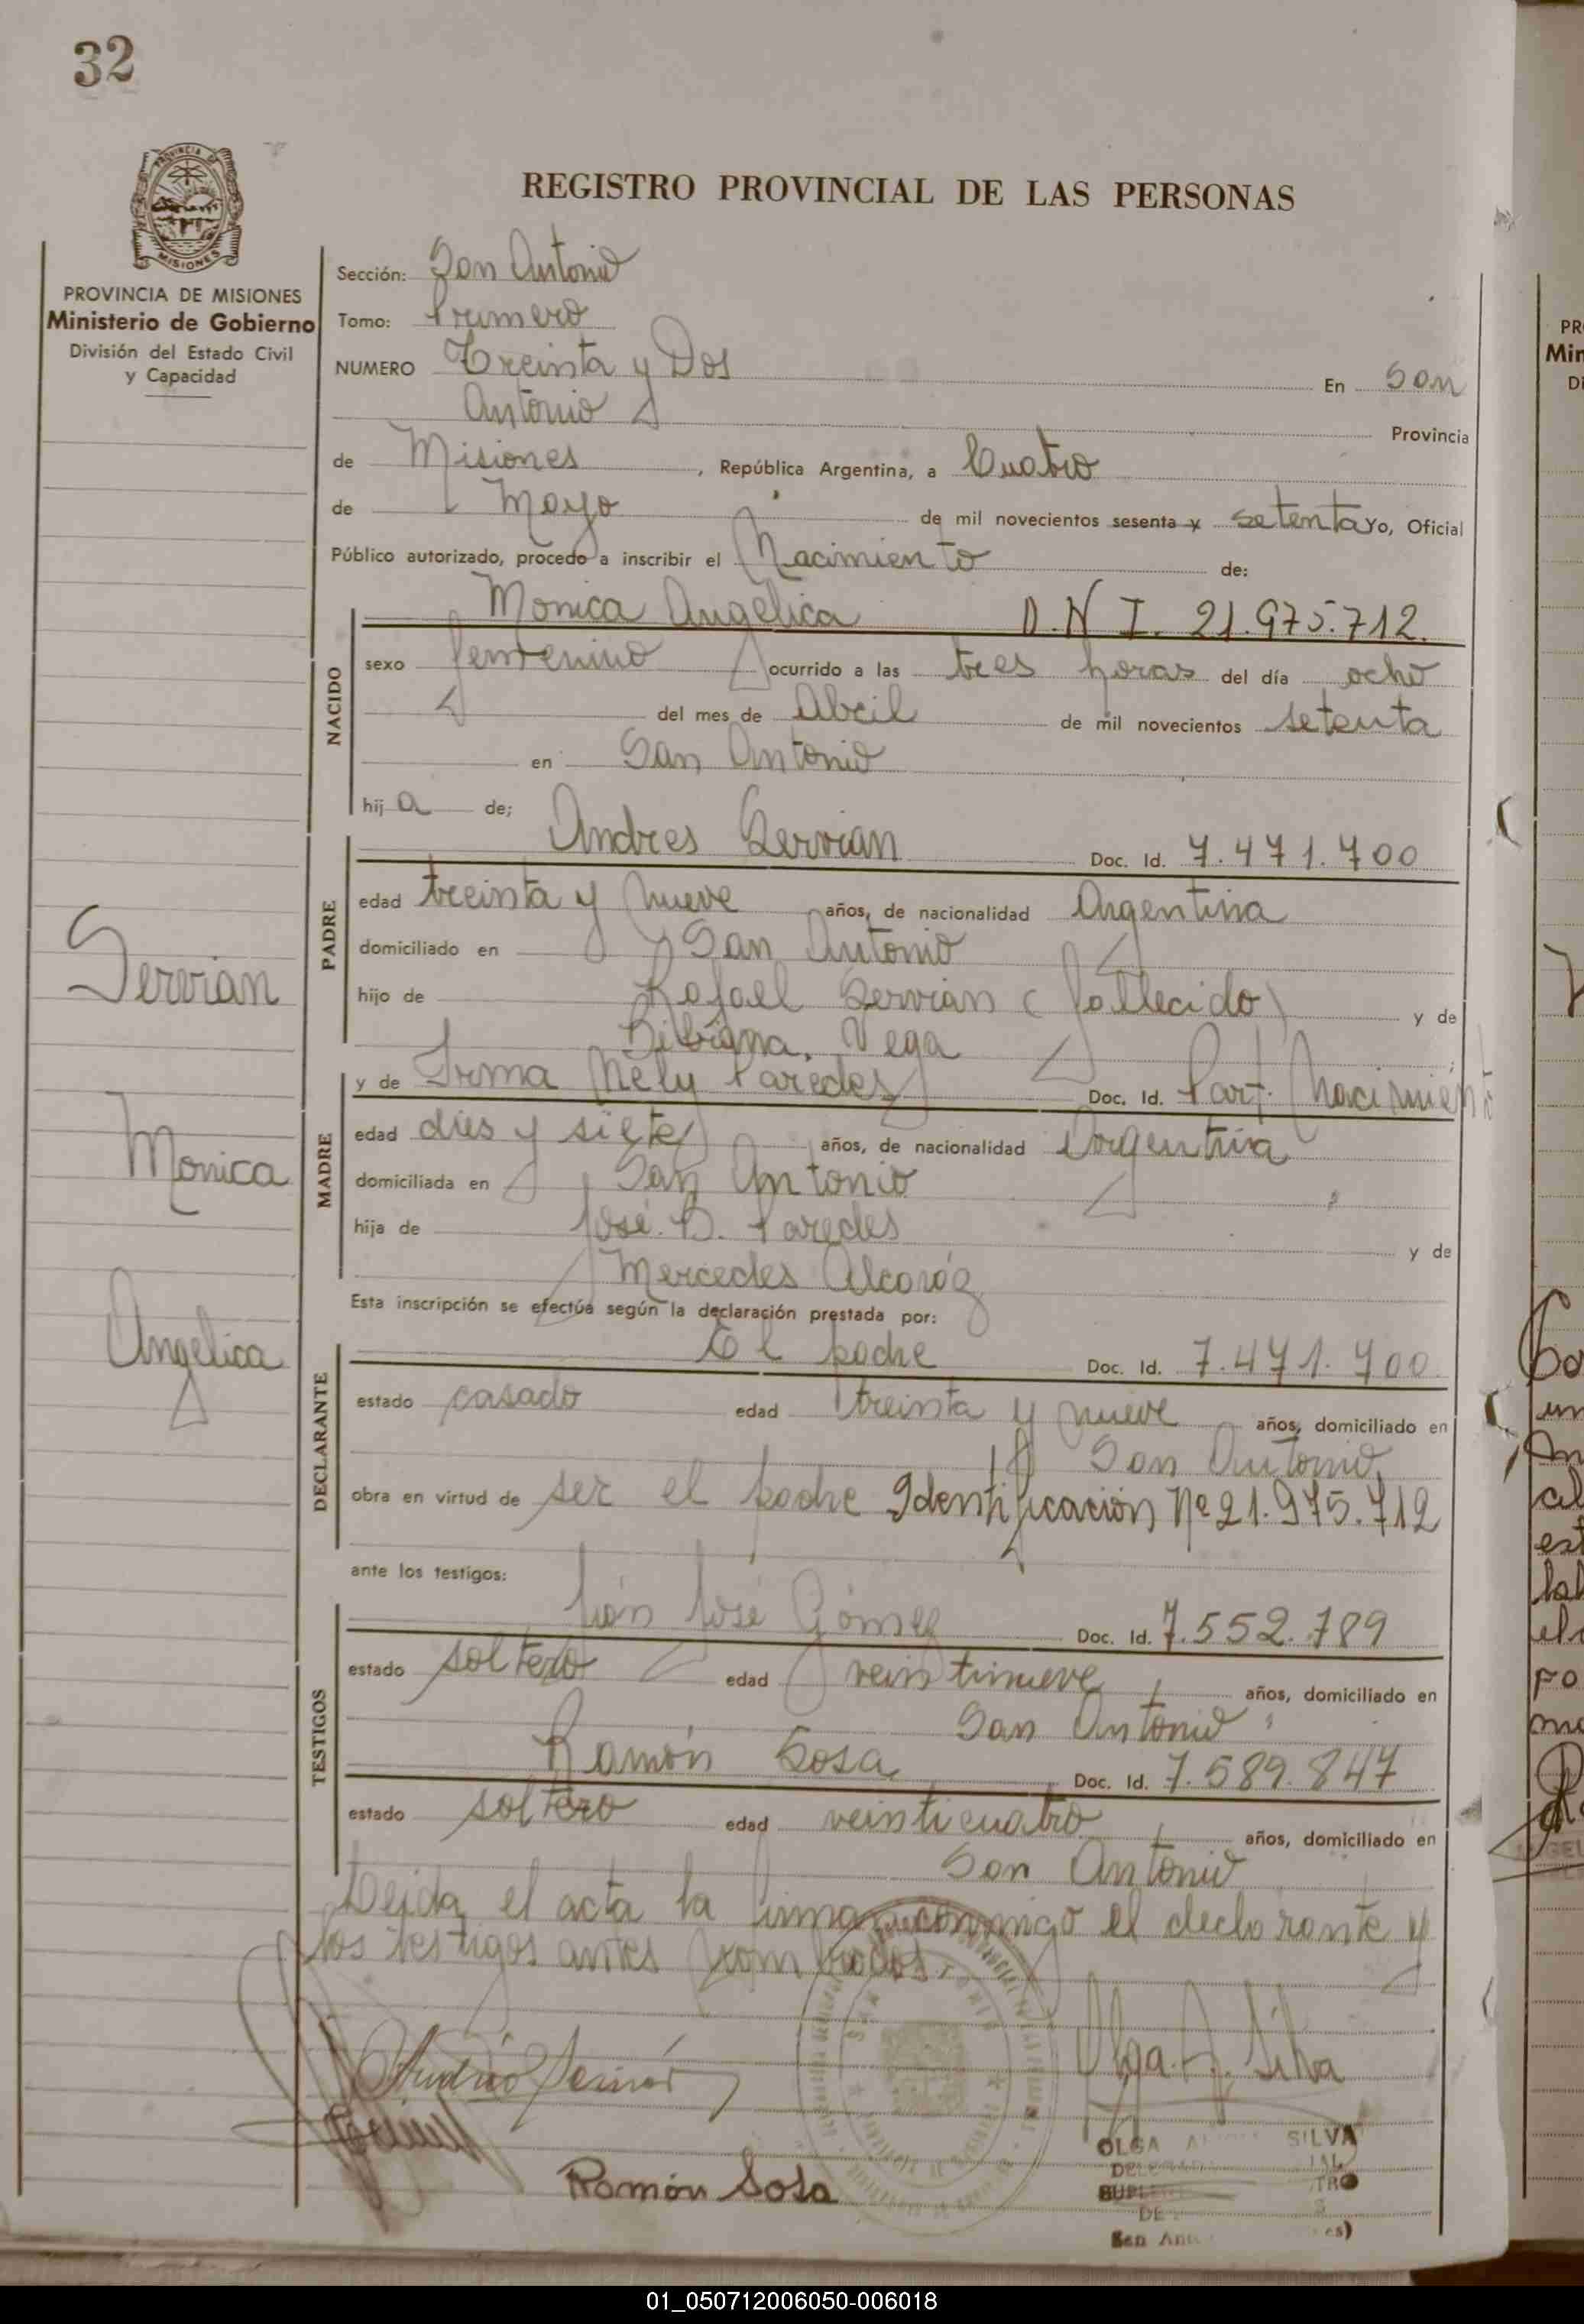 32
REGISTRO PROVINCIAL DE LAS PERSONAS
PROVINCIA DE MISIONES
Ministerio de Gobierno
División del Estado Civil
y Capacidad
Sección: San Antonio
Tomo: Primero
NUMERO Treinta y Dos En San
Antonio Provincia
de Misiones, República Argentina, a Cuatro
de Mayo de mil novecientos sesenta y setenta yo, Oficial
Público autorizado, procedo a inscribir el Nacimiento de:
NACIDO
Monica Angelica D.N I. 21.975.712.
sexo femenino ocurrido a las tres horas del día ocho
del mes de Abril de mil novecientos setenta
en San Antonio
hija de;
PADRE
Andres Servian Doc. Id. 7.471.700
edad treinta y nueve años, de nacionalidad Argentina
domiciliado en San Antonio
hijo de Rafael Servian (fallecido) y de
Bibiana Vega
MADRE
y de Irma Nely Paredes Doc. Id. Part. Nacimiento
edad dies y siete años, de nacionalidad Argentina
domiciliada en San Antonio
hija de José B. Paredes y de
Mercedes Alcoróz
Esta inscripción se efectúa según la declaración prestada por:
DECLARANTE
El padre Doc. Id. 7.471.700
estado casado edad treinta y nueve años, domiciliado en
San Antonio
obra en virtud de ser el padre Identificación Nº 21.975.712
ante los testigos:
TESTIGOS
José Gómez Doc. Id. 7.552.789
estado soltero edad veintinueve años, domiciliado en
San Antonio
Ramón Sosa Doc. Id. 7.589.847
estado soltero edad veinticuatro años, domiciliado en
San Antonio
Leida el acta la firman conmigo el declarante y
los testigos antes nombrados.
Servian
Monica
Angelica
Olga A. Silva
Ramón Sosa
OLGA SILVA
01_050712006050-006018